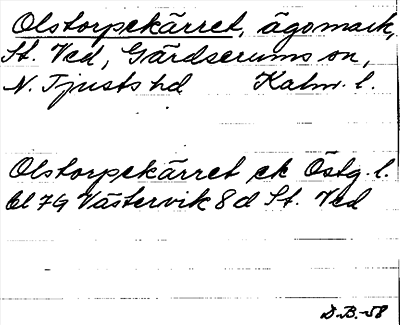 Olstorpskärret, ägomark,
St. Ved, Gärdserums sn,
N. Tjusts hd Kalm. l.
Olstorpskärret ek Östg. l.
bl 7G Västervik 8d St. Ved
D.B.-58